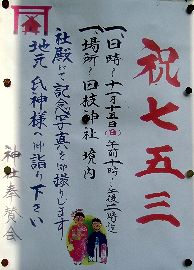 祝七五三
一、日時〜十一月十五日(日)午前十時〜午後二時迄
一、場所〜田枝神社 境内
社殿にて記念写真をお撮りします
地元 氏神様へお詣り下さい
神社奉賛会